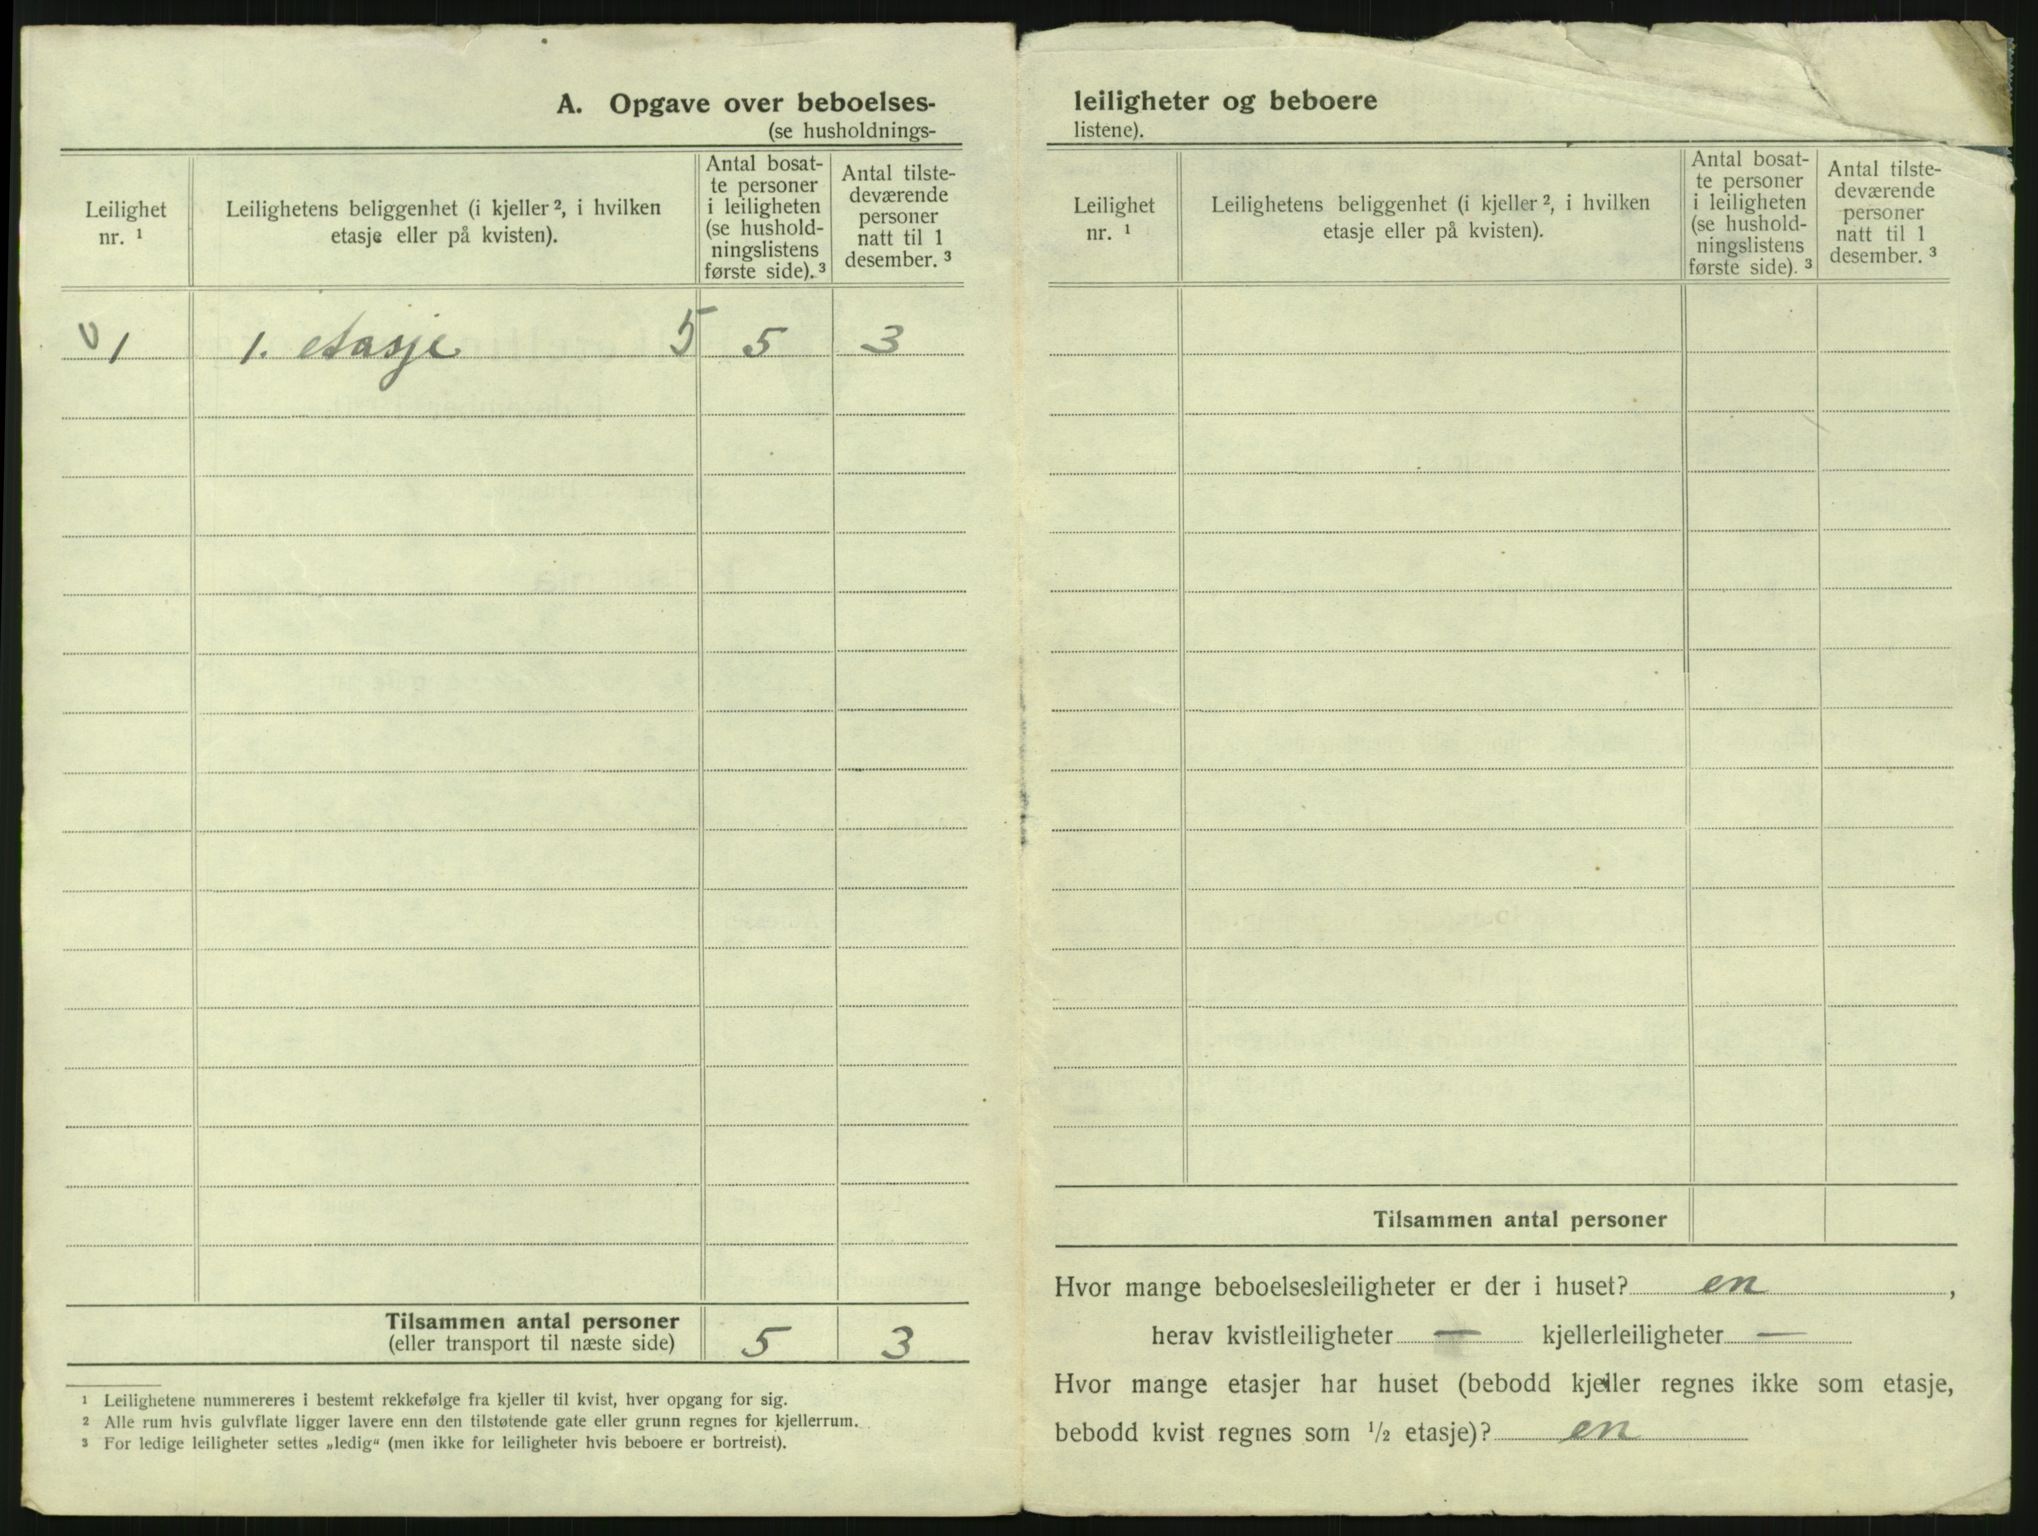 A. Opgave over beboelses-
(se husholdnings-
Leilighet
nr. ¹
Leilighetens beliggenhet (i kjeller ², i hvilken
etasje eller på kvisten).
Antal bosat-
te personer
i leiligheten
(se hushold-
ningslistens
første side). ³
Antal tilste-
deværende
personer
natt til 1
desember. ³
1 1. etasje 5 5 3
Tilsammen antal personer
(eller transport til næste side)
5 3
¹ Leilighetene nummereres i bestemt rekkefølge fra kjeller til kvist, hver opgang for sig.
² Alle rum hvis gulvflate ligger lavere enn den tilstøtende gate eller grunn regnes for kjellerrum.
³ For ledige leiligheter settes „ledig“ (men ikke for leiligheter hvis beboere er bortreist).
leiligheter og beboere
listene).
Leilighet
nr. ¹
Leilighetens beliggenhet (i kjeller ², i hvilken
etasje eller på kvisten).
Antal bosat-
te personer
i leiligheten
(se hushold-
ningslistens
første side). ³
Antal tilste-
deværende
personer
natt til 1
desember. ³
Tilsammen antal personer
Hvor mange beboelsesleiligheter er der i huset? en ,
herav kvistleiligheter — kjellerleiligheter —
Hvor mange etasjer har huset (bebodd kjeller regnes ikke som etasje,
bebodd kvist regnes som ½ etasje)? en